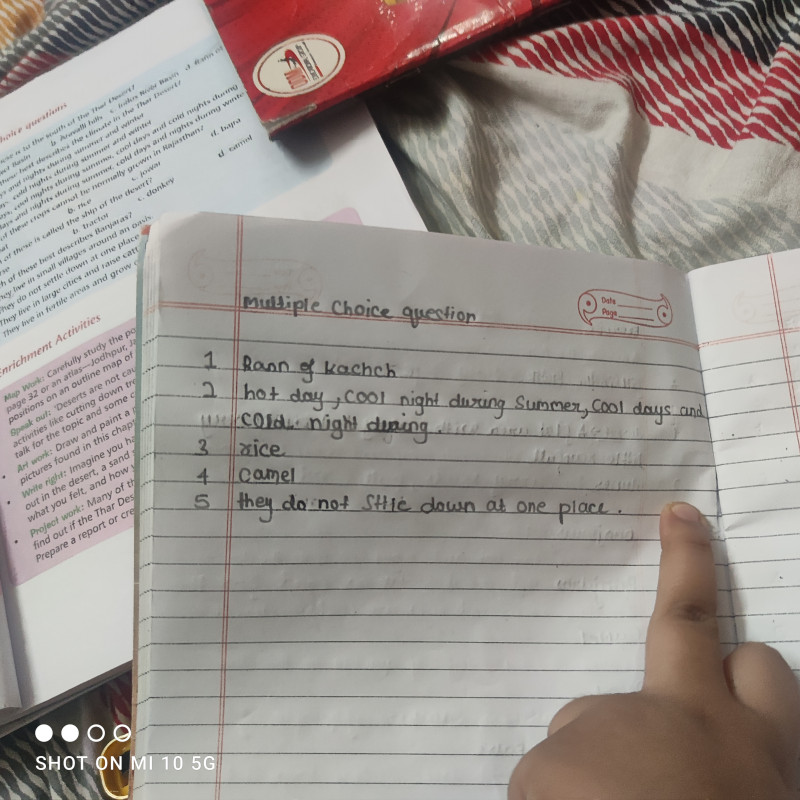 hoice questions
to the south of the Thar Desert?
b. Aravalli hills c. Indus River Basin d. Rann of
best describes the climate in the Thar Desert?
and nights during summer and winter
cool nights during summer and winter
cool nights during summer, cool days and cold nights during
days and nights during summer, cold days and nights during winter
these crops cannot be normally grown in Rajasthan?
b. rice c. jowar d. bajra
of these is called the ship of the desert?
b. tractor c. donkey d. camel
of these best describes Banjaras?
They live in small villages around an oasis
They do not settle down at one place
They live in large cities and raise
They live in fertile areas and grow
Enrichment Activities
Map Work: Carefully study the
page 32 or an atlas—Jodhpur,
positions on an outline map of
Speak out: 'Deserts are not
activities like cutting down
talk for the topic and some
Art work: Draw and paint a
pictures found in this
Write right: Imagine you
out in the desert, a sand
what you felt, and how
Project work: Many of
find out if the Thar
Prepare a report or
Multiple Choice question
Date
Page
1 Rann of Kachch
2 hot day, cool night during Summer, Cool days and
cold. night during.
3 rice
4 Camel
5 they do not Sttle down at one place.
SHOT ON MI 10 5G